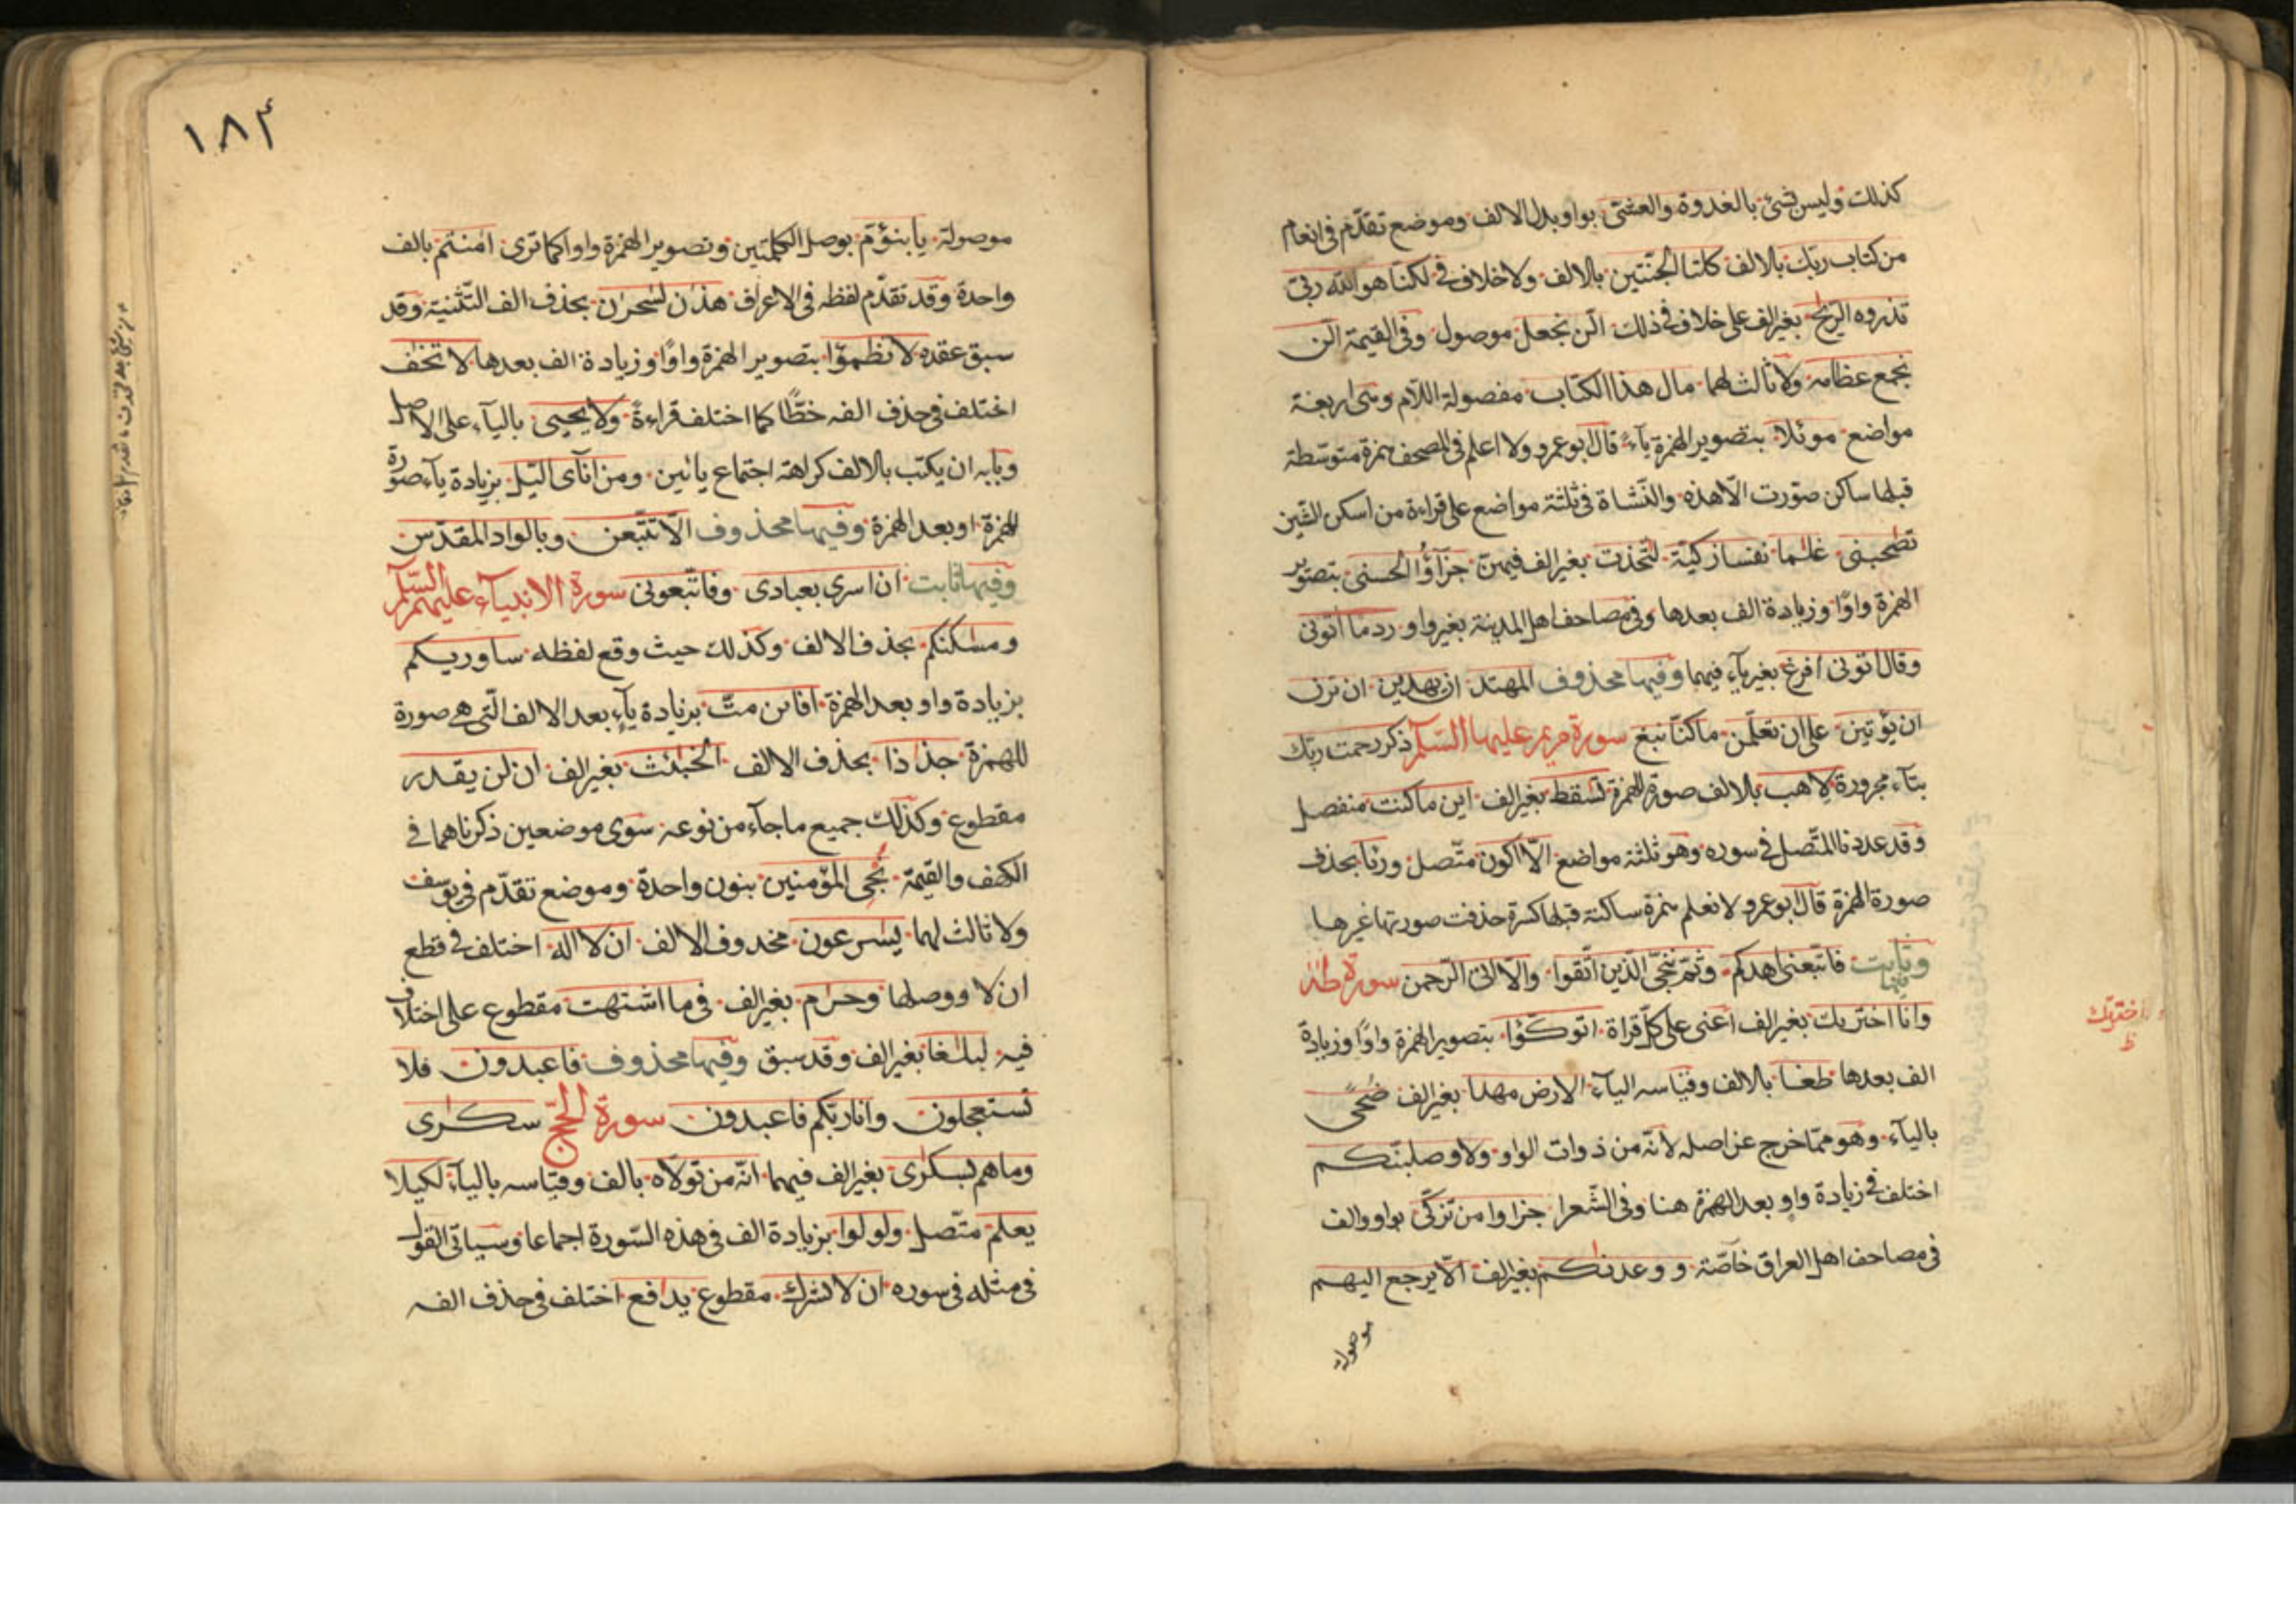 كذلك وليس شئ بالغدوة والعشي بواو بدل الالف وموضع تقدّم في انعام
من كتاب ربك بالالف كلتا الجنّتين بالالف ولاخلاف في لكنّا هو اللّه ربّي
تذروه الرّيح بغير الف على خلاف في ذلك الّن نجعل موصول وفي القيمة الّن
نجمع عظامه ولا ثالث لهما مال هذا الكتاب مفصولة اللّام وهي اربعة
مواضع موئلا بتصوير الهمزة يآءً قال ابو عمرو ولا اعلم في المصحف همزة متوسّطة
قبلها ساكن صوّرت الّا هذه والنّشاة في ثلثة مواضع على قراءة من اسكن الشّين
تصحبني غلما نفسا زكيّة لتّخذت بغير الف فيهنّ جزآؤا الحسنى بتصوير
الهمزة واوًا وزيادة الف بعدها وفي مصاحف اهل المدينة بغير واو ردما اتوني
وقال اتوني افرغ بغير يآء فيهما وفيها محذوف المهتد ان يهدين ان ترن
ان يؤتين على ان تعلّمن ما كنّا نبغ سورة مريم عليها السّلم ذكر رحمت ربّك
بتآء مجرورة لاهب بالالف صورة للهمزة تسقط بغير الف اين ما كنت منفصل
وقد عددنا المتّصل في سوره وهو ثلثة مواضع الّا اكون متّصل ورئا بحذف
صورة الهمزة قال ابو عمرو لا نعلم همزة ساكنة قبلها كسرة حذفت صورتها غيرها
وفيها ثابت فاتّبعني اهدكم وثمّ ننجّي الّذين اتّقوا والّا اتى الرّحمن سورة طه
وانا اخترىك بغير الف اعنى على كلّ قراة اتوكّؤا بتصوير الهمزة واوًا وزيادة
الف بعدها طغا بالالف وقياسه اليآء الارض مهدا بغير الف ضُحًى
باليآء وهو ممّا خرج عن اصله لانّه من ذوات الواو ولاوصلبنّكم
اختلف في زيادة واو بعد الهمزة هنا وفي الشّعرا جزاوا من تزكّى بواو والف
في مصاحف اهل العراق خآصّة ووعدنكم بغير الف الّا يرجع اليهم
موصولة
اخترىك
ظ
١٨٤
موصولة يابنؤمّ بوصل الكلمتين وتصوير الهمزة واوا كما ترى امنتم بالف
واحدة وقد تقدّم لفظه في الاعراف هذن لسحرن بحذف الف التّثنية وقد
سبق عقده لا تظمؤا بتصوير الهمزة واوًا وزيادة الف بعدها لا تخف
اختلف في حذف الفه خطًّا كما اختلف قراءةً ولا يحيى باليآء على الاصل
وبابه ان يكتب بالالف كراهة اجتماع يائين ومن انآئ اليّل بزيادة يآء صورة
للهمزة او بعد الهمزة وفيها محذوف الّا تتّبعن وبالواد المقدّس
وفيها ثابت ان اسرى بعبادى وفاتّبعونى سورة الانبيآء عليهم السّلم
ومسكنكم بحذف الالف وكذلك حيث وقع لفظه ساوريكم
بزيادة واو بعد الهمزة افائن متّ بزيادة يآء بعد الالف الّتي هي صورة
للهمزة جذاذا بحذف الالف الخبئث بغير الف ان لن يقدر
مقطوع وكذلك جميع ما جآء من نوعه سوى موضعين ذكرناهما في
الكهف والقيمة نُجى المؤمنين بنون واحدة وموضع تقدّم في يوسف
ولا ثالث لهما يسرعون محذوف الالف ان لا اله اختلف في قطع
ان لا ووصلها وحرم بغير الف في ما اشتهت مقطوع على اختلاف
فيه لبلغا بغير الف وقد سبق وفيها محذوف فاعبدون فلا
تستعجلون وانا ربّكم فاعبدون سورة الحجّ سكرى
وما هم بسكرى بغير الف فيهما انّه من تولّاه بالف وقياسه باليآء لكيلا
يعلم متّصل ولولوا بزيادة الف في هذه السّورة اجماعا وسياتى القول
في مثله في سوره ان لا تشرك مقطوع يدافع اختلف في حذف الفه